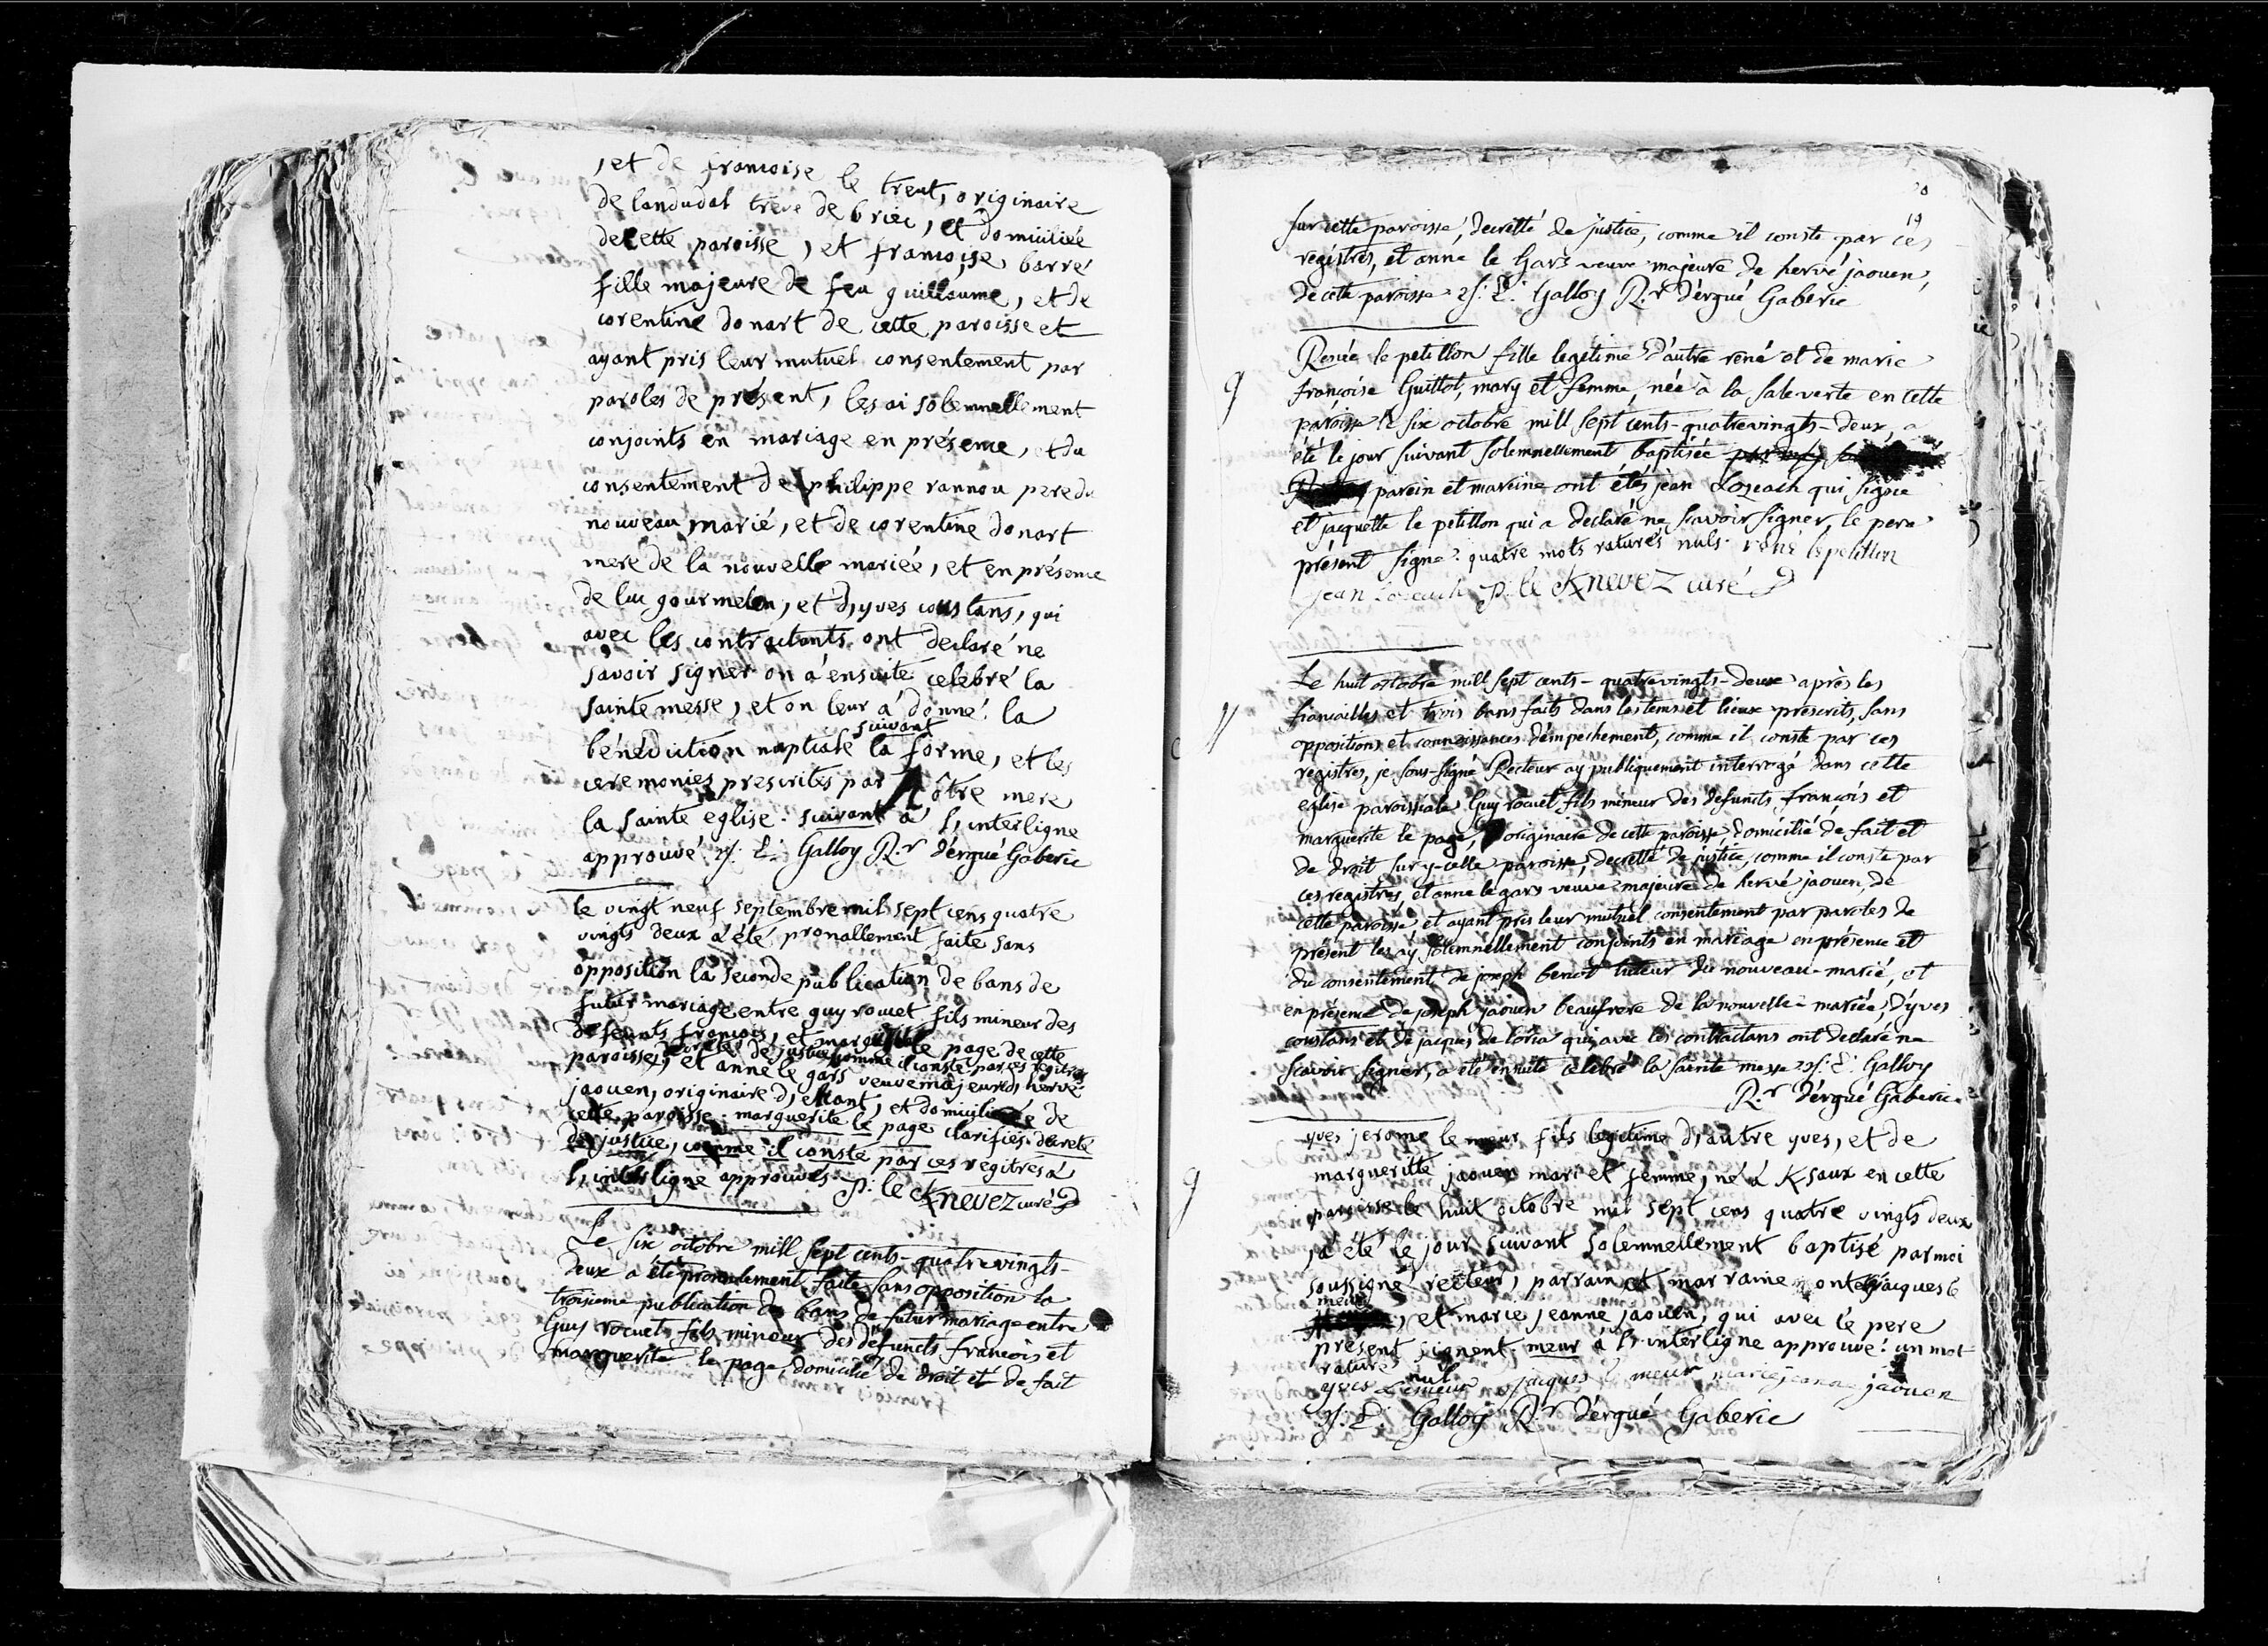 , et de francoise le treut, originaire
de landudal treve de briec, et domiciliée
de cette paroisse, et francoise barré
fille majeure de feu guillaume, et de
corentine donart de cette paroisse et
ayant pris leur mutuel consentement par
paroles de présent, les ai solemnellement
conjoints en mariage en présence, et du
consentement de philippe rannou pere du
nouveau marié, et de corentine donart
mere de la nouvelle mariée, et en présence
de luc gourmelen, et d,yves coustans, qui
avec les contractants ont declaré ne
sçavoir signer on a ensuite celebré la
sainte messe, et on leur a donné la
suivant
bénédiction nuptiale la forme, et les
ceremonies prescrites par nôtre mere
la sainte eglise. suivant a l,interligne
approuvé. Galloy R.r d'ergué Gaberic
le vingt neuf septembre mil sept cens quatre
vingts deux a été pronallement faite sans
opposition la seconde publication de bans de
futur mariage entre guy rouet fils mineur des
defeunts francois, et marguerite le page de cette
decreté de justice comme il conste par ces regitres
paroisse, et anne le gars veuve majeure d, hervé
jaouen, originaire d, elliant, et domiciliée de
cette paroisse. marguerite le page clarifiés. decreté
de justice, comme il conste par ces regitres a
l,interligne approuvés. P. le Knevez curé
Le six octobre mill sept cents-quatrevingts-
deux a été pronalement faite sans opposition la
troisieme publication de bans de futur mariage entre
Guy rocuet fils mineur des defuncts francois et
marguerite le page domicilié de droit et de fait
19
sur cette paroisse, decretté de justice, comme il conste par ces
registres, et anne le Gars veuve majeure de hervé jaouen,
de cette paroisse Galloy R.r d'ergué Gaberic
Renée le petillon fille legitime d'autre rené et de marie
françoise Guittot, mary et femme, née à la sale verte en cette
paroisse le six octobre mill sept cents-quatrevingts-deux, a
été le jour suivant solemnellement baptisée
parein et mareine ont étés jean Lozeach qui signe
et jacquette le petillon qui a declaré ne scavoir signer, le pere
présent signe. quatre mots raturés nuls. rené lepetillon
jean Lozeach P. le Knevez curé
Le huit octobre mill sept cents-quatrevingts-deux après les
fiançailles et trois bans faits dans les tems et lieux prescrits, sans
oppositions et connoissances d'empechement, comme il conste par ces
registres, je sous-signé Recteur ay publiquement interrogé dans cette
eglise paroissiale Guy rocuet fils mineur des defuncts françois et
marguerite le page, originaire de cette paroisse domicilié de fait et
de droit sur y-celle paroisse, decretté de justice, comme il conste par
ces registres, et anne le gars veuve majeure de hervé jaouen, de
cette paroisse, et ayant pris leur mutuel consentement par paroles de
présent les ay solemnellement conjoints en mariage en présence et
du consentement de joseph benoit tuteur du nouveau-marié, et
en présence de joseph jaouen beaufrere de la nouvelle-mariée, d'yves
coustans et de jacques de loria qui avec les contractans ont declaré ne
scavoir signer, a été ensuite célébré la sainte messe Galloy
R.r d'ergué Gaberic
yves jerome le meur fils legitime d,autre yves, et de
margueritte jaouen mari et femme, né a Ksaux en cette
paroisse le huit octobre mil sept cens quatre vingts deux
, a été le jour suivant solemnellement baptisé par moi
soussigné recteur, parrain et marraine ont été jacques le
meur
, et marie jeanne jaouen, qui avec le pere
présent signent. meur a l,interligne approuvé. un mot
raturé nul
yves Lemeur jacques le meur marie jeanne jaouen
Galloy R.r d'ergué Gaberic